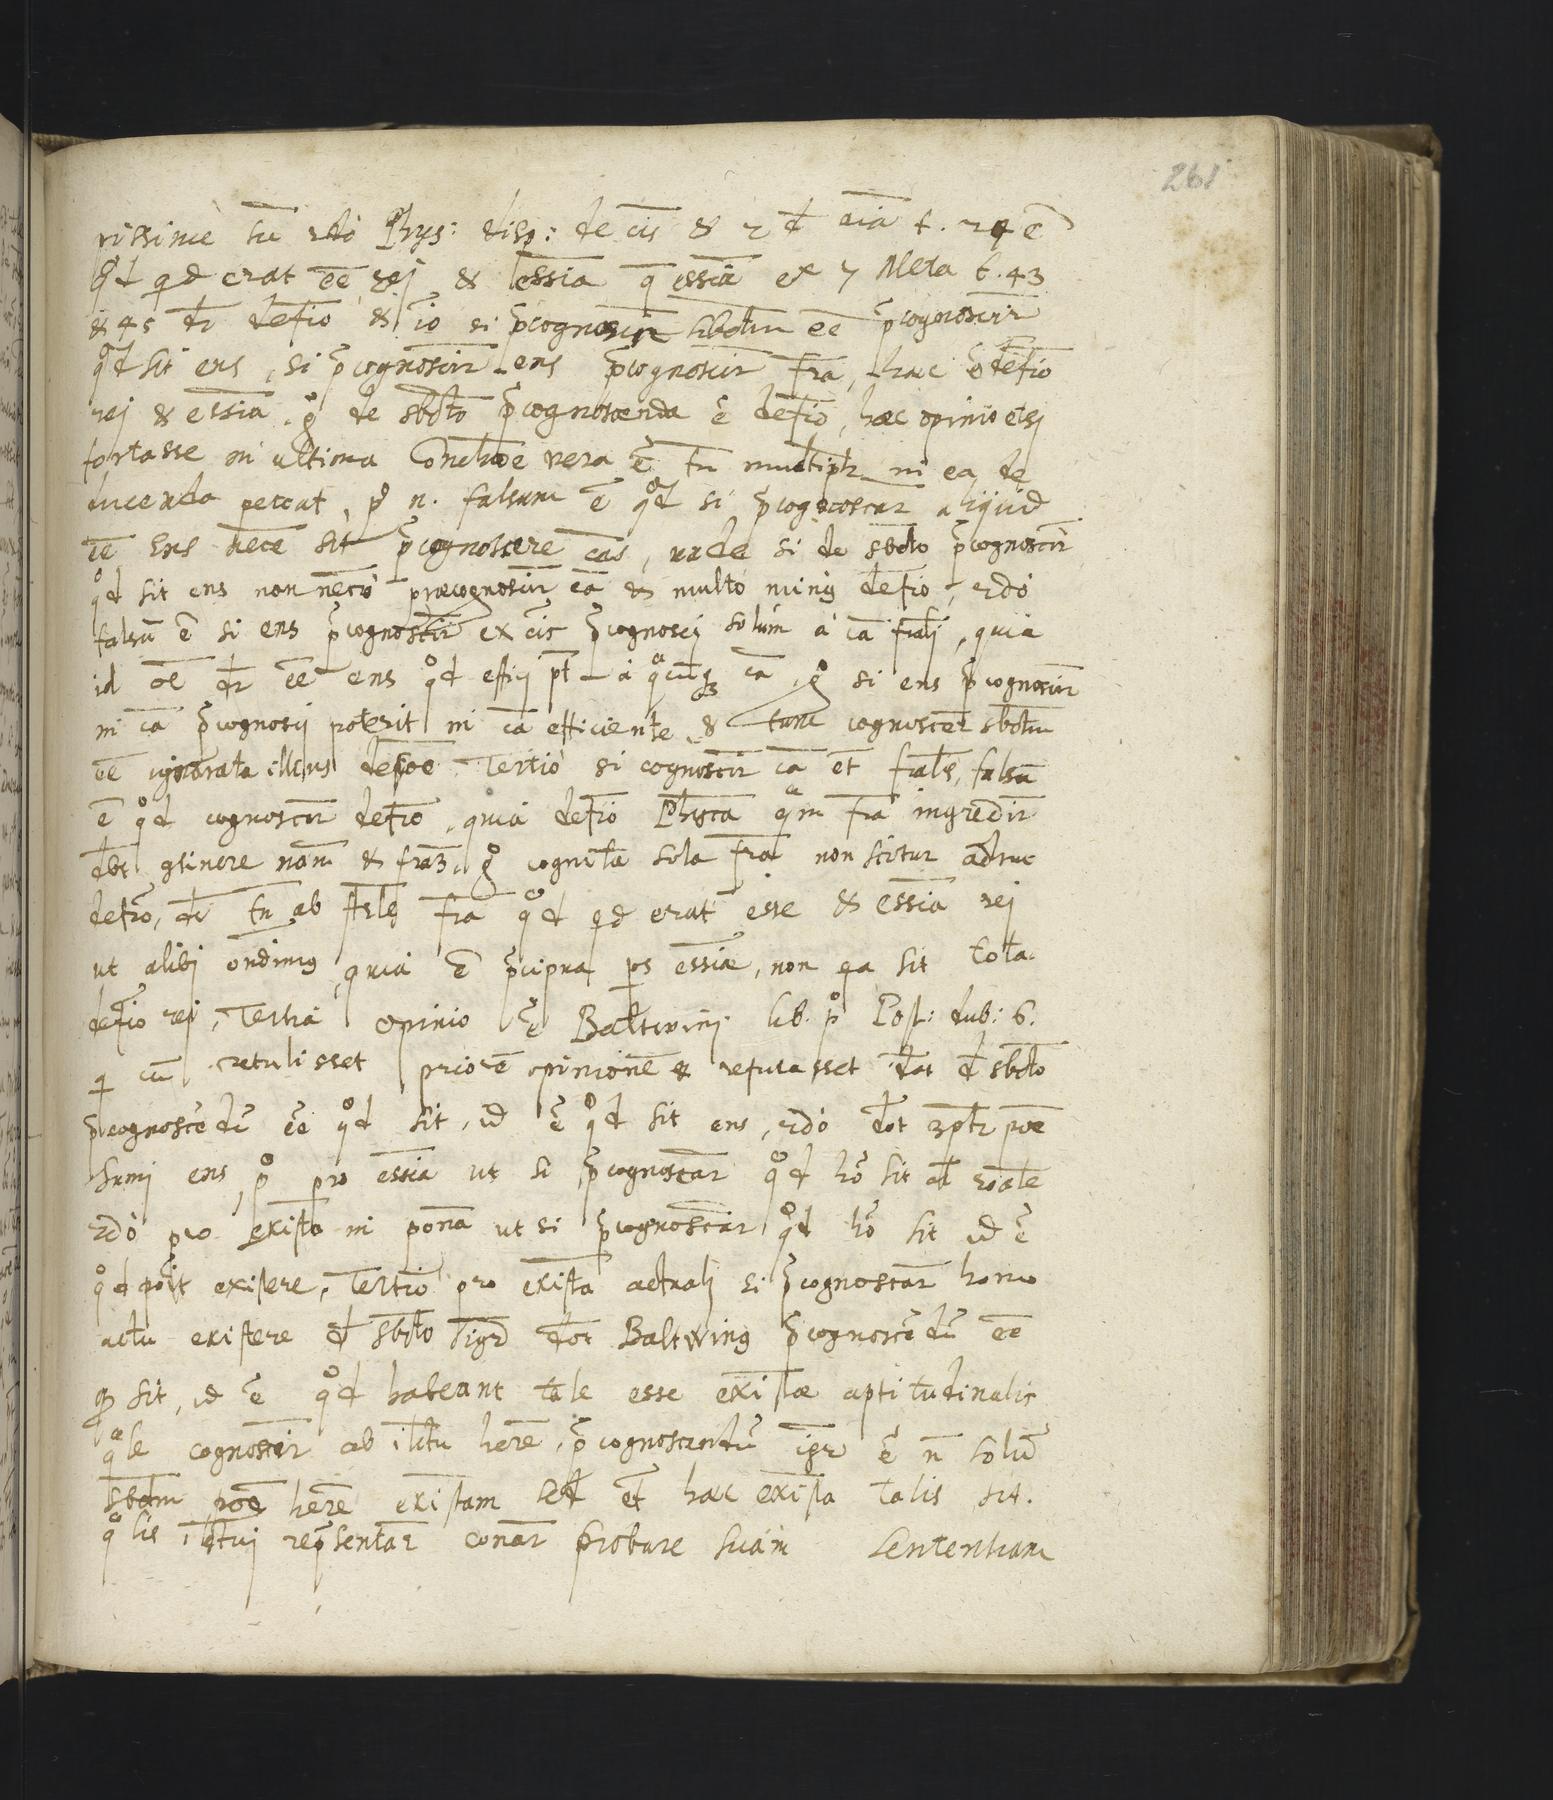 261
Phys: disp: de cis & 2 d aia t. 24 ē
qd qd erat ēē rej & essia q essia ex 7 Meta t. 43
& 45 dr defio & io si p̄cognoscir sbctum ēē p̄cognoscir
qd sit ens, si p̄cognoscir ens p̄cognoscir fra, haec ē defio
rej & essia . g de sbcto p̄cognoscenda ē defio, haec opinio etsj
fortasse in ultima Conclꝰoe vera ē tn multiplr in ea de
ducenda peccat, p n. falsum ē qd si p̄cognoscar aliquid
ēē ens necē sit p̄cognoscere cas, unde si de sbcto p̄cognoscir
qd sit ens non necrio praecognoscir ca & multo minꝰ defio, 2do
falsū ē si ens p̄cognoscir ex cis p̄cognoscj solum a ca frali, quia
id oē dr ēē ens qd effici pt a qcūq ca, g si ens p̄cognoscir
in ca p̄cognosci poterit in ca efficiente, & tunc cognoscer sbctum
ēē ignorata illius defioe. Tertio si cognoscir ca et fralis, falsū
ē qd cognoscir defio, quia defio Phisca qm fra ingredir
dbt gtinere nam & fram g cognita sola fra non scitur adhuc
defio, dr tn ab Arle fra qd qd erat esse & essia rej
ut alibj ondimꝰ, quia ē p̄cipua ps essiae, non qa sit tota
defio rei, Tertia opinio ē Baltwinj lib. pº Post: dub: 6.
q cū retulisset priorē opinionē & refutasset dat d sbcto
p̄cognoscēdū ēē qd sit, id ē qd sit ens, 2do dot 3plr pōē
sumj ens, pº pro essia ut si p̄cognoscar qd hō sit al roale
2do pro exista in pona ut si p̄cognoscar qd hō sit id ē
qd poit existere, Tertio pro exista actualj si p̄cognoscar homo
actu existere d sbcto igr dot Baltwinꝰ p̄cognoscēdū ēē
qd sit, id ē qd habeant tale esse existae aptitudinalis
qale cognoscir ab ilctu herē, p̄cognoscendū igr ē n̄ solū
sbctm pōē herē existam sed et haec exista talis sit.
qlis ilctuj rep̄sentar conar probare suam sententiam